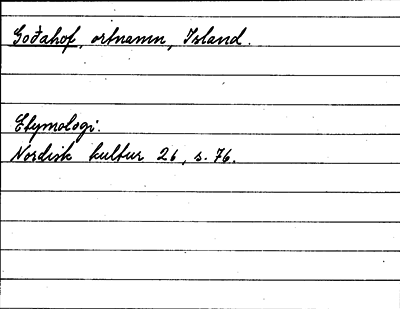 Goðahof, ortnamn, Island.
Etymologi.
Nordisk kultur 26, s. 76.